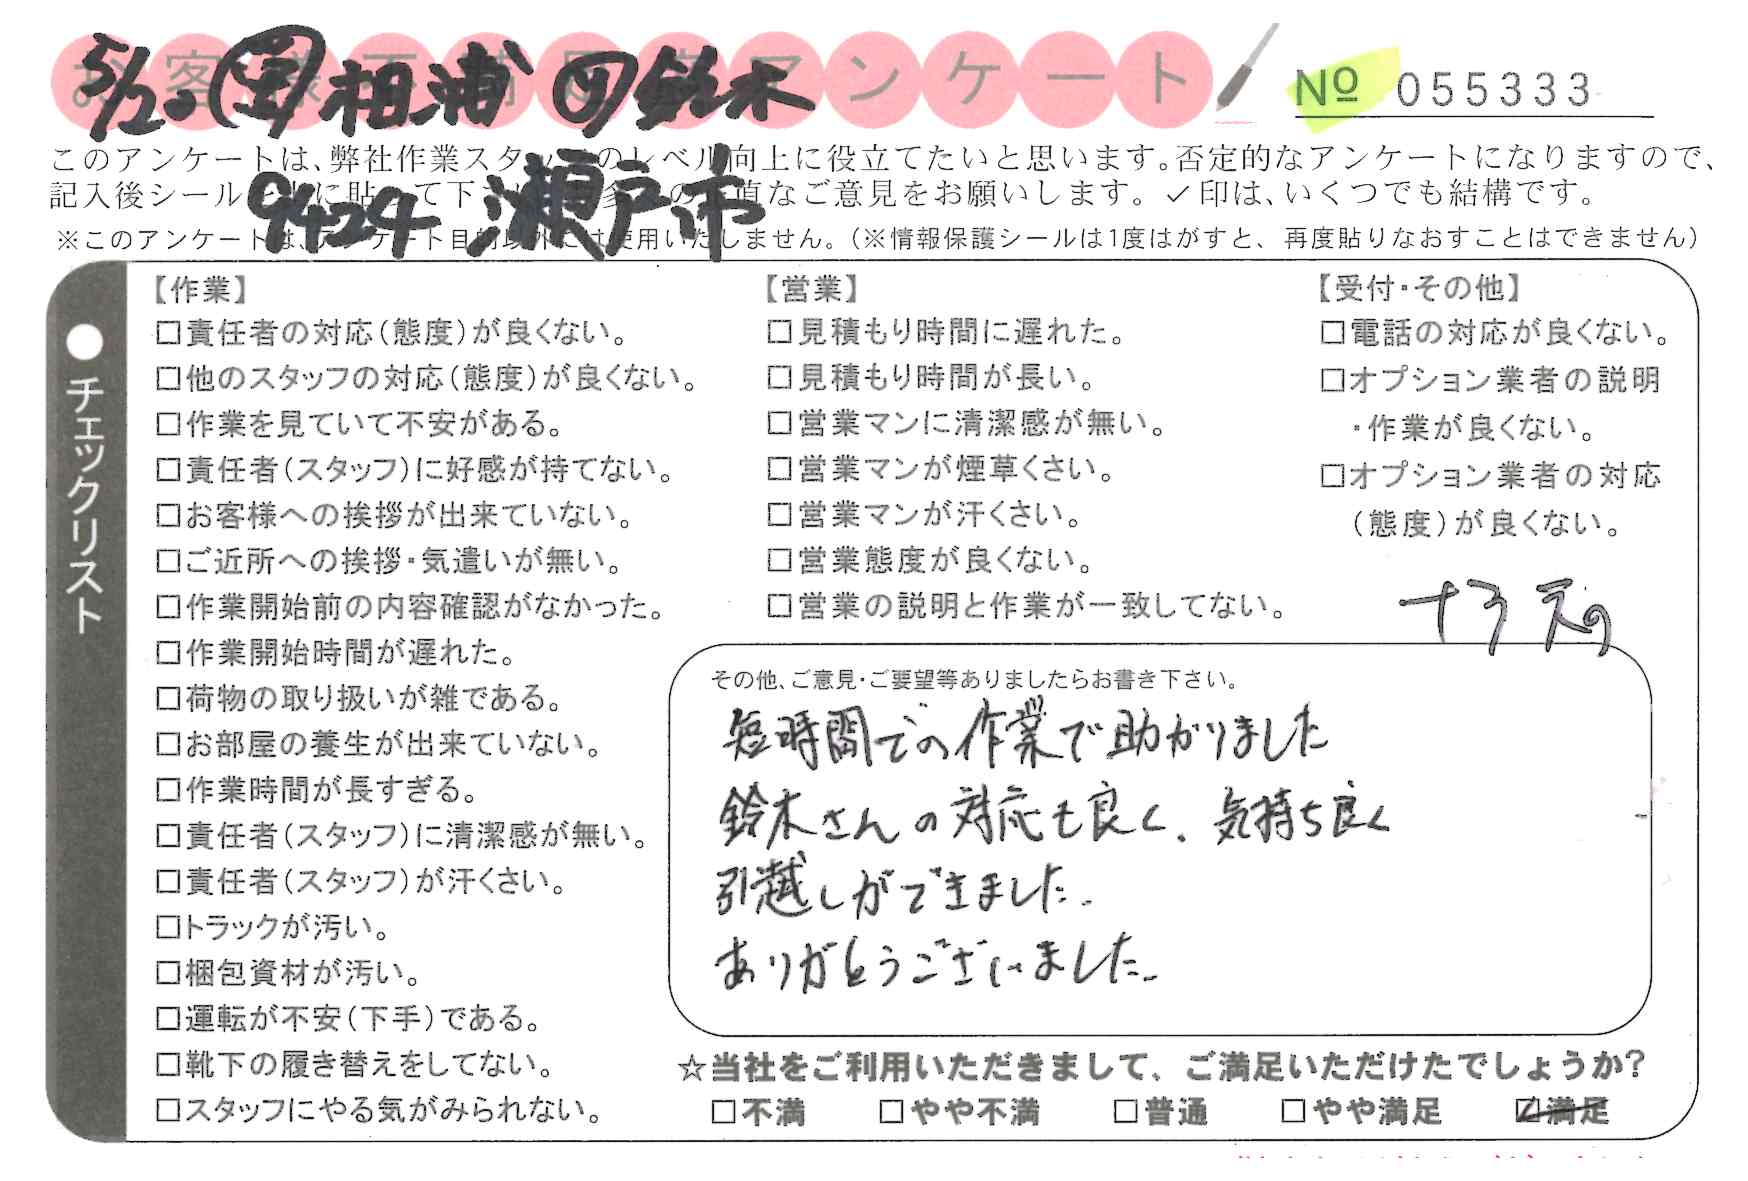 お客様不満足度アンケート
№ 055333
5/20 営 相浦 作 鈴木
9424 瀬戸市
このアンケートは、弊社作業スタッフのレベル向上に役立てたいと思います。否定的なアンケートになりますので、
記入後シールを に貼って下さい。 多 の 直なご意見をお願いします。✓印は、いくつでも結構です。
※このアンケートは、アンケート目的以外には使用いたしません。（※情報保護シールは1度はがすと、再度貼りなおすことはできません）
●チェックリスト
【作業】
□責任者の対応（態度）が良くない。
□他のスタッフの対応（態度）が良くない。
□作業を見ていて不安がある。
□責任者（スタッフ）に好感が持てない。
□お客様への挨拶が出来ていない。
□ご近所への挨拶・気遣いが無い。
□作業開始前の内容確認がなかった。
□作業開始時間が遅れた。
□荷物の取り扱いが雑である。
□お部屋の養生が出来ていない。
□作業時間が長すぎる。
□責任者（スタッフ）に清潔感が無い。
□責任者（スタッフ）が汗くさい。
□トラックが汚い。
□梱包資材が汚い。
□運転が不安（下手）である。
□靴下の履き替えをしてない。
□スタッフにやる気がみられない。
【営業】
□見積もり時間に遅れた。
□見積もり時間が長い。
□営業マンに清潔感が無い。
□営業マンが煙草くさい。
□営業マンが汗くさい。
□営業態度が良くない。
□営業の説明と作業が一致してない。
【受付・その他】
□電話の対応が良くない。
□オプション業者の説明
・作業が良くない。
□オプション業者の対応
（態度）が良くない。
その他、ご意見・ご要望等ありましたらお書き下さい。
短時間での作業で助かりました
鈴木さんの対応も良く、気持ち良く
引越しができました.
ありがとうございました.
☆当社をご利用いただきまして、ご満足いただけたでしょうか？
□不満 □やや不満 □普通 □やや満足 ☑満足